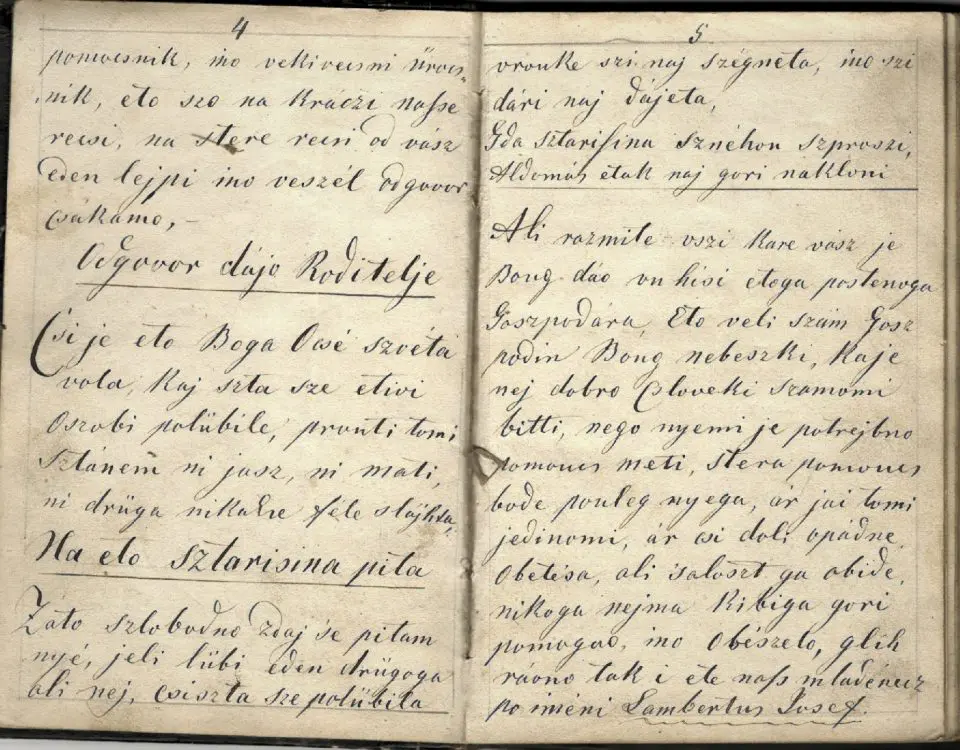 4
pomocsnik, ino vekivecsni Örocs,
nik, eto szo na krádzi nasse
recsi, na stere recsi od vász
eden lejpi ino veszél odgovor
csakamo, –
Odgovor dájo Roditelje
Csi je eto Boga Ocsé szvéta
vola, kaj szta sze etivi
Oszobi polübile, prouti tomi
Sztánem ni jasz, ni mati,
ni drüga nikakse féle slájhta,
Na eto sztarisina pita
Záto szlobodno zdaj se pitam
nyé, jeli lübi eden drügoga
ali nej, csiszta sze polübila
5
vrouke szi naj szégneta, ino szi
dári naj dájeta,
Gda sztarisina sznéhon szproszi,
Aldomás etak naj gori nakloni
Ali razmite vszi kare vász je
Boug dáo vu hisi etoga postenoga
Goszpodára, Eto veli szám Gosz
podin Boug nebeszki, Kaje
nej dobro Csloveki szamomi
bitti, nego nyemi je potrejbno
pomoucs meti, stera pomoucs
bode pouleg nyega, ár jai tomi
jedinomi, ár csi doli opádne,
Obetésa, ali saloszt ga obide,
nikoga nejma kibiga gori
pomogao, ino Obészeto, glih
ráono tak i ete nass mladénecz
po iméni Lambertus Josef.